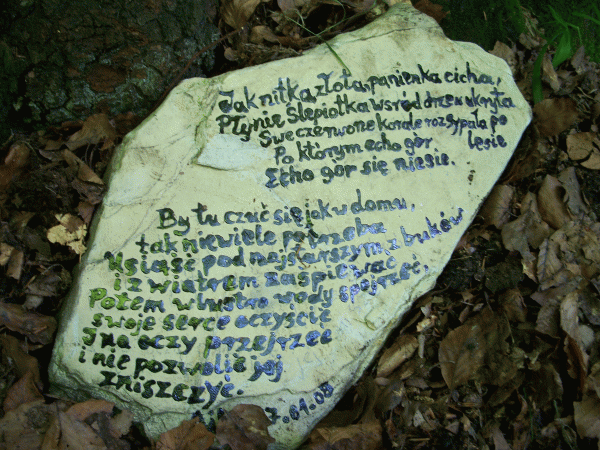 Jak nitka złota, panienka cicha,
Płynie Ślepiotka wśród drzew ukryta
Swe czerwone korale rozsypała po lesie
Po którym echo gór
Echo gór się niesie.
By tu czuć się jak w domu,
tak niewiele potrzeba
Usiąść pod najstarszym z buków
i z wiatrem zaśpiewać
Potem w lustro wody spojrzeć,
swoje serce oczyścić
I na oczy przejrzeć
i nie pozwolić jej
zniszczyć.